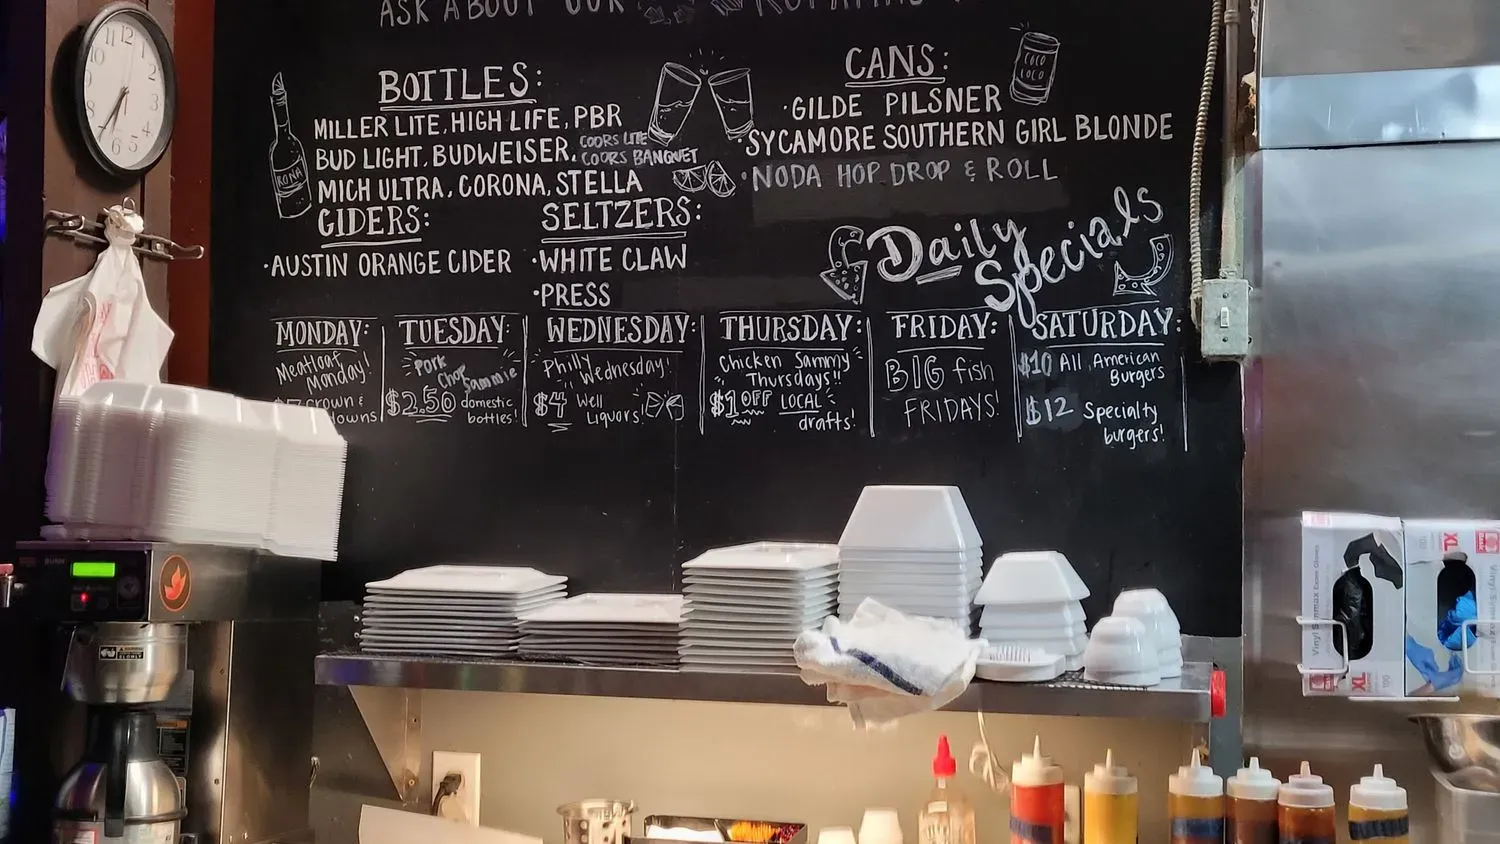 ASK ABOUT OUR
BOTTLES:
MILLER LITE, HIGH LIFE, PBR
BUD LIGHT, BUDWEISER, COORS LITE
COORS BANQUET
MICH ULTRA, CORONA, STELLA
RONA
CIDERS:
·AUSTIN ORANGE CIDER
SELTZERS:
·WHITE CLAW
·PRESS
CANS:
·GILDE PILSNER
·SYCAMORE SOUTHERN GIRL BLONDE
·NODA HOP DROP & ROLL
COCO
LOCO
Daily
Specials
MONDAY:
Meatloaf
Monday!
crown &
downs
TUESDAY:
Pork
Chop
Sammie
$2.50 domestic
bottles!
WEDNESDAY:
Philly
Wednesday!
$4 Well
Liquors!
THURSDAY:
Chicken Sammy
Thursdays!!
$1 OFF LOCAL
drafts!
FRIDAY:
BIG fish
FRIDAYS!
SATURDAY:
$10 All American
Burgers
$12 Specialty
burgers!
12
1
2
3
4
5
6
BUNN
XL
XL
100